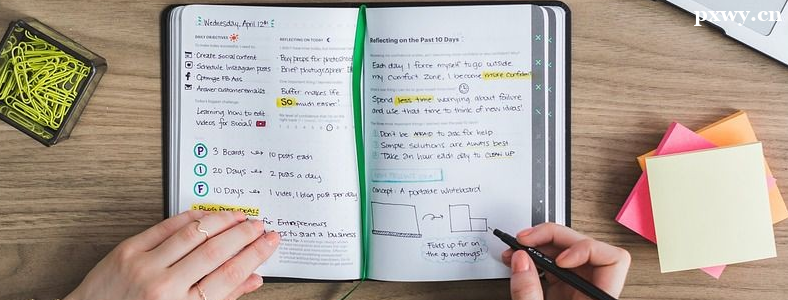 Wednesday, April 12th
DAILY OBJECTIVES
Create social content
Schedule Instagram posts
Optimize FB Ads
Answer customer emails
Today's biggest challenge
Learning how to edit
videos for social
REFLECTING ON TODAY
Buy props for photoshoot
Brief photographer
Buffer makes life
SO much easier!
P 3 Boards 10 posts each
I 20 Days 2 posts a day
F 10 Days 1 video, 1 blog post per day
BLOG POST IDEAS
for Entrepreneurs
to start a business
Reflecting on the Past 10 Days
Each day I force myself to go outside
my comfort zone, I become more confident
Spend less time worrying about failure
and use that time to think of new ideas!
Don't be AFRAID to ask for help.
Simple solutions are ALWAYS best
Take an hour each day to CLEAN UP
Concept: A portable whiteboard
Folds up for on
the go meetings!
pxwy.cn